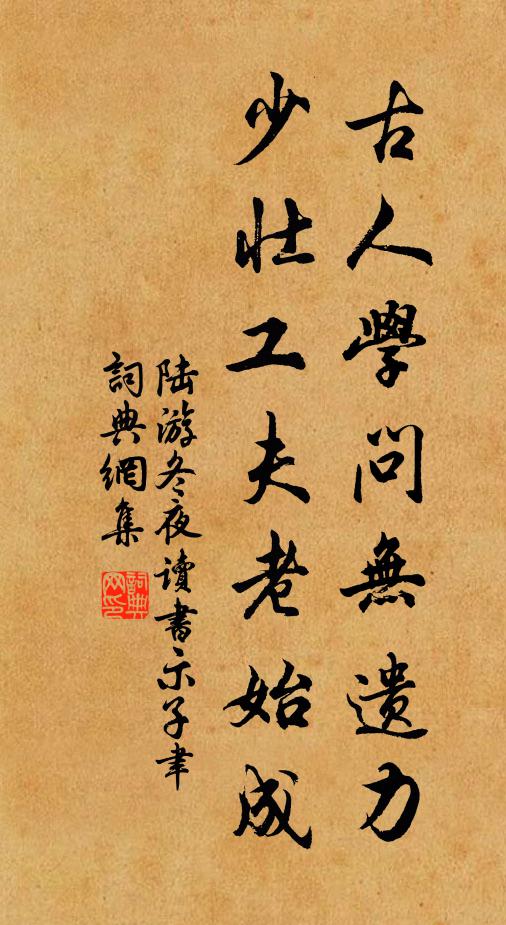 古人學問無遺力
少壯工夫老始成
陸游冬夜讀書示子聿
詞典網集
詞典網印